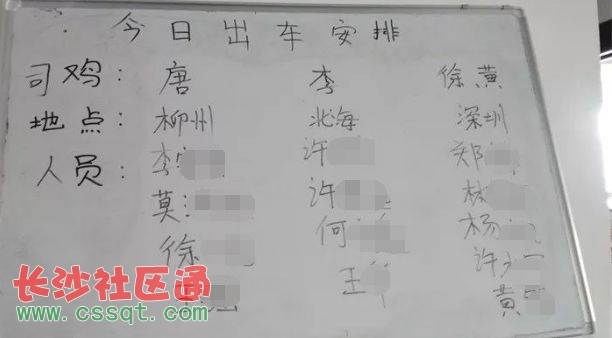 今日出车安排
司鸡: 唐 李 徐黄
地点: 柳州 北海 深圳
人员: 李 许 郑
莫 许 林
徐 何 杨
王 许
黄
长沙社区通
www.cssqt.com